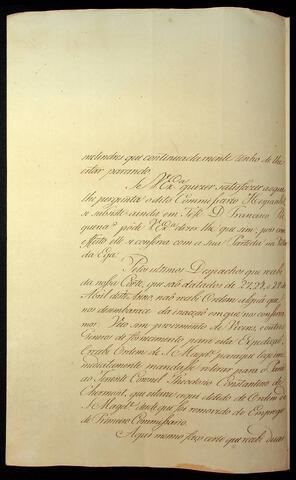 metendas que continuadamente tenho de lhe
estar parando.
Se V. Ex.ª quizer satisfazer a que
lhe pergunta o dito Commissario Hespanhol,
se subsiste ainda em Teffé D. Francisco Re
quena, póde V. Ex.ª dizer lhe que sim; pois com
effeito elle se confina com a sua Partida na Villa
da Ega.
Pelos ultimos Despachos que recebi
da nossa Corte, que são datados de 22, 23, e 24 de
Abril deste Anno, não recebi Ordem alguma que
nos desembarace da inacção em que nos conserva
mos. Vão sim provimento de Viveres, e outros
Generos de fornecimento para esta Expedição,
e recebi Ordem de S. Mag.e para que logo im
mediatamente mandasse retirar para o Pará
ao Tenente Coronel Theodosio Constantino de
Chermont, que estava aqui detido de Ordem de
S. Mag.e desde que foi removido do Emprego
de Primeiro Commissario.
Aqui mesmo faço certo que recebi duas